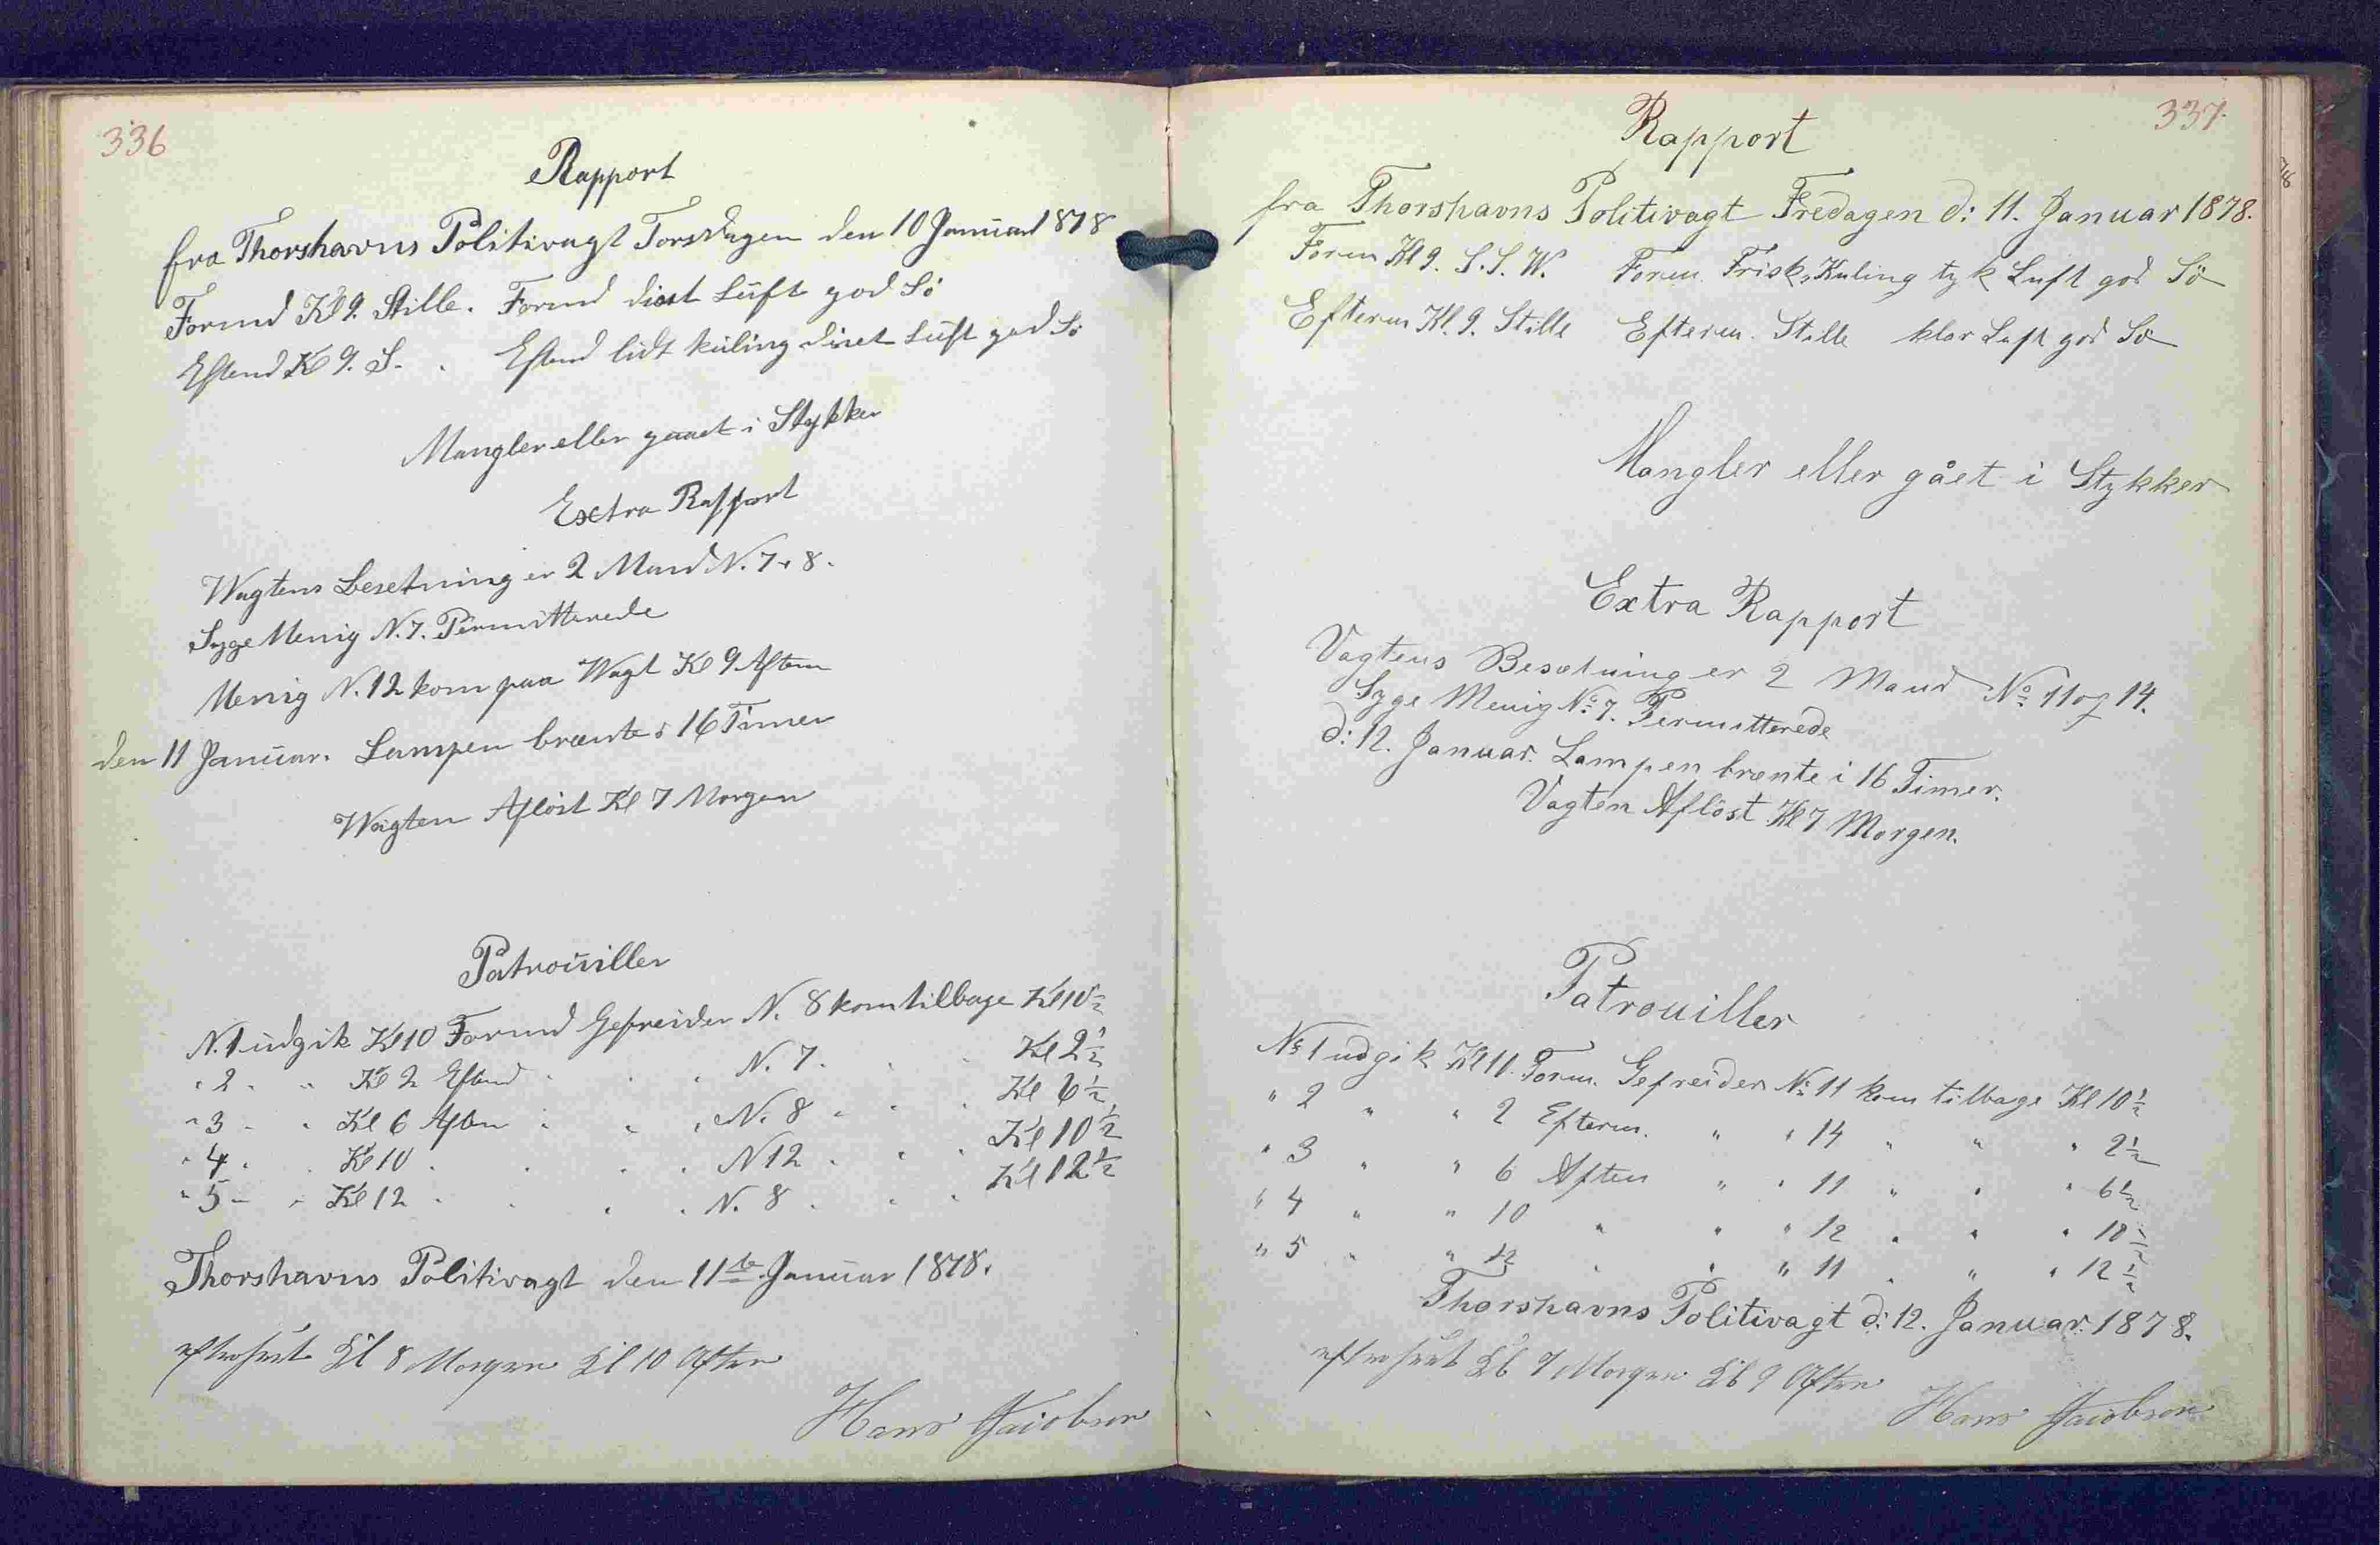 336
Rapport
fra Thorshavns Politivagt Torsdagen den 10 Januar 1878
Formd Kl 9. Stille. Formd diset Luft god Sö
Eftmd Kl 9. S. . Eftmd lidt kuling diset Luft god Sö
Mangler eller gaaet i Stykker
Extra Rapport
Wagtens Besetning er 2 Mand N. 7 . 8.
Syge Menig N. 7. Permitterede
Menig N. 12 kom paa Wagt Kl 9 Aften
den 11 Januar. Lampen brænte i 16 Timer
Wagten Aflöst Kl 7 Morgen
Patrouiller
N. 1 udgik Kl 10 Formd Gefreider N. 8 kom tilbage Kl 10 ½
" 2 " " Kl 2 Eftmd " " " N. 7 . " " Kl 2 ½
" 3 " " Kl 6 Aften " " " N. 8 " " " Kl 6 ½
" 4 " " Kl 10 " " " " N 12 " " " Kl 10 ½
" 5 " " Kl 12 " " " " N. 8 " " " Kl 12 ½
Thorshavns Politivagt den 11te Januar 1878.
efterseet Kl 8 Morgen Kl 10 Aften
Hans Jacobsen
337.
Rapport
fra Thorshavns Politivagt Fredagen d: 11. Januar 1878.
Form Kl 9. S. S. W. Form. Frisk, Kuling tyk Luft god Sö
Efterm Kl. 9. Stille Efterm. Stille klar Luft god Sö
Mangler eller gået i Stykker
Extra Rapport
Vagtens Besætning er 2 Mand No 11 og 14.
Syge Menig No 7. Permitterede
d: 12. Januar. Lampen brænte i 16 Timer.
Vagten Aflöst Kl 7 Morgen.
Patrouiller
No 1 udgik Kl 10. Form. Gefreider No 11 kom tilbage Kl 10 ½
" 2 " " 2 Efterm. " " 14 " " " 2 ½
" 3 " " 6 Aften " " 11 " " " 6 ½
" 4 " " 10 " " " 12 " " " 10 ½
" 5 " " 12 " " " 11 " " " 12 ½
Thorshavns Politivagt d: 12. Januar. 1878.
efterseet Kl 7 Morgen Kl 9 Aften
Hans Jacobsen